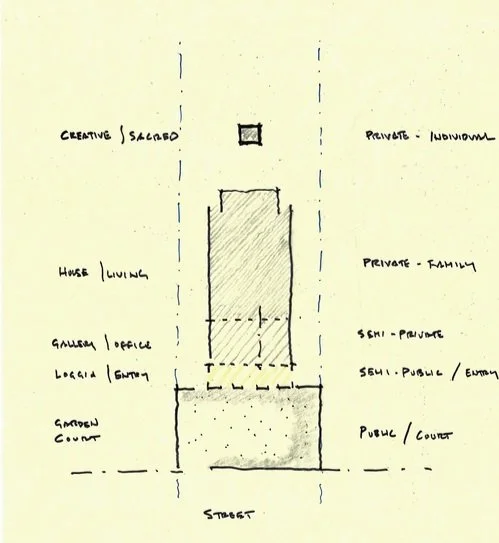 CREATIVE / SACRED
PRIVATE - INDIVIDUAL
HOUSE / LIVING
PRIVATE - FAMILY
GALLERY / OFFICE
SEMI - PRIVATE
LOGGIA / ENTRY
SEMI - PUBLIC / ENTRY
GARDEN
COURT
PUBLIC / COURT
STREET